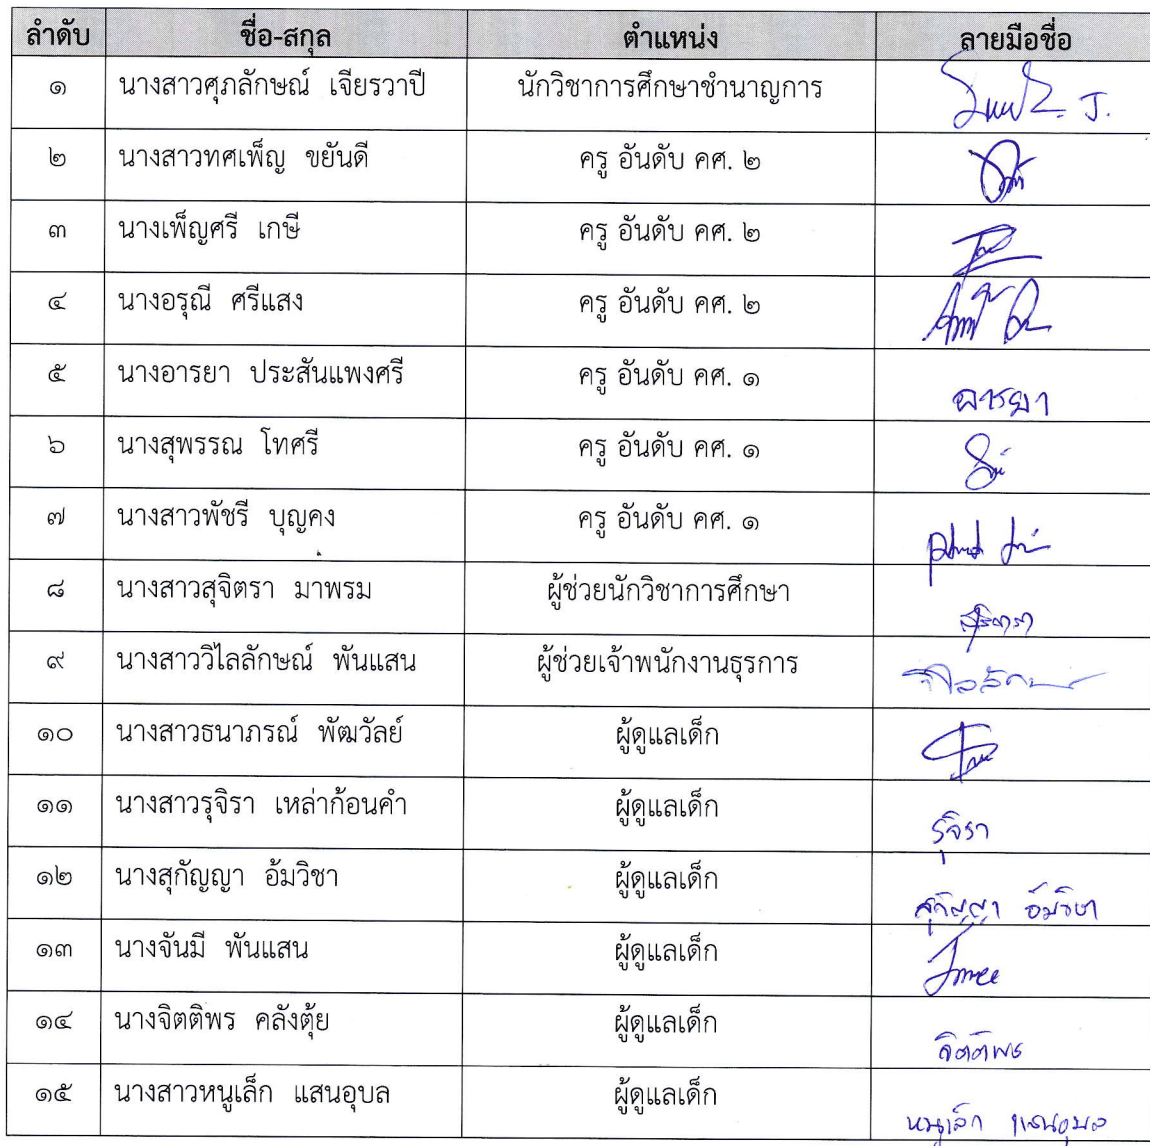 ลำดับ ชื่อ-สกุล ตำแหน่ง ลายมือชื่อ
๑ นางสาวศุภลักษณ์ เจียรวาปี นักวิชาการศึกษาชำนาญการ
๒ นางสาวทศเพ็ญ ขยันดี ครู อันดับ คศ. ๒
๓ นางเพ็ญศรี เกษี ครู อันดับ คศ. ๒
๔ นางอรุณี ศรีแสง ครู อันดับ คศ. ๒
๕ นางอารยา ประสันแพงศรี ครู อันดับ คศ. ๑ อารยา
๖ นางสุพรรณ โทศรี ครู อันดับ คศ. ๑
๗ นางสาวพัชรี บุญคง ครู อันดับ คศ. ๑
๘ นางสาวสุจิตรา มาพรม ผู้ช่วยนักวิชาการศึกษา สุจิตรา
๙ นางสาววิไลลักษณ์ พันแสน ผู้ช่วยเจ้าพนักงานธุรการ วิไลลักษณ์
๑๐ นางสาวธนาภรณ์ พัฒวัลย์ ผู้ดูแลเด็ก
๑๑ นางสาวรุจิรา เหล่าก้อนคำ ผู้ดูแลเด็ก รุจิรา
๑๒ นางสุกัญญา อ้มวิชา ผู้ดูแลเด็ก สุกัญญา อ้มวิชา
๑๓ นางจันมี พันแสน ผู้ดูแลเด็ก
๑๔ นางจิตติพร คลังตุ้ย ผู้ดูแลเด็ก จิตติพร
๑๕ นางสาวหนูเล็ก แสนอุบล ผู้ดูแลเด็ก หนูเล็ก แสนอุบล